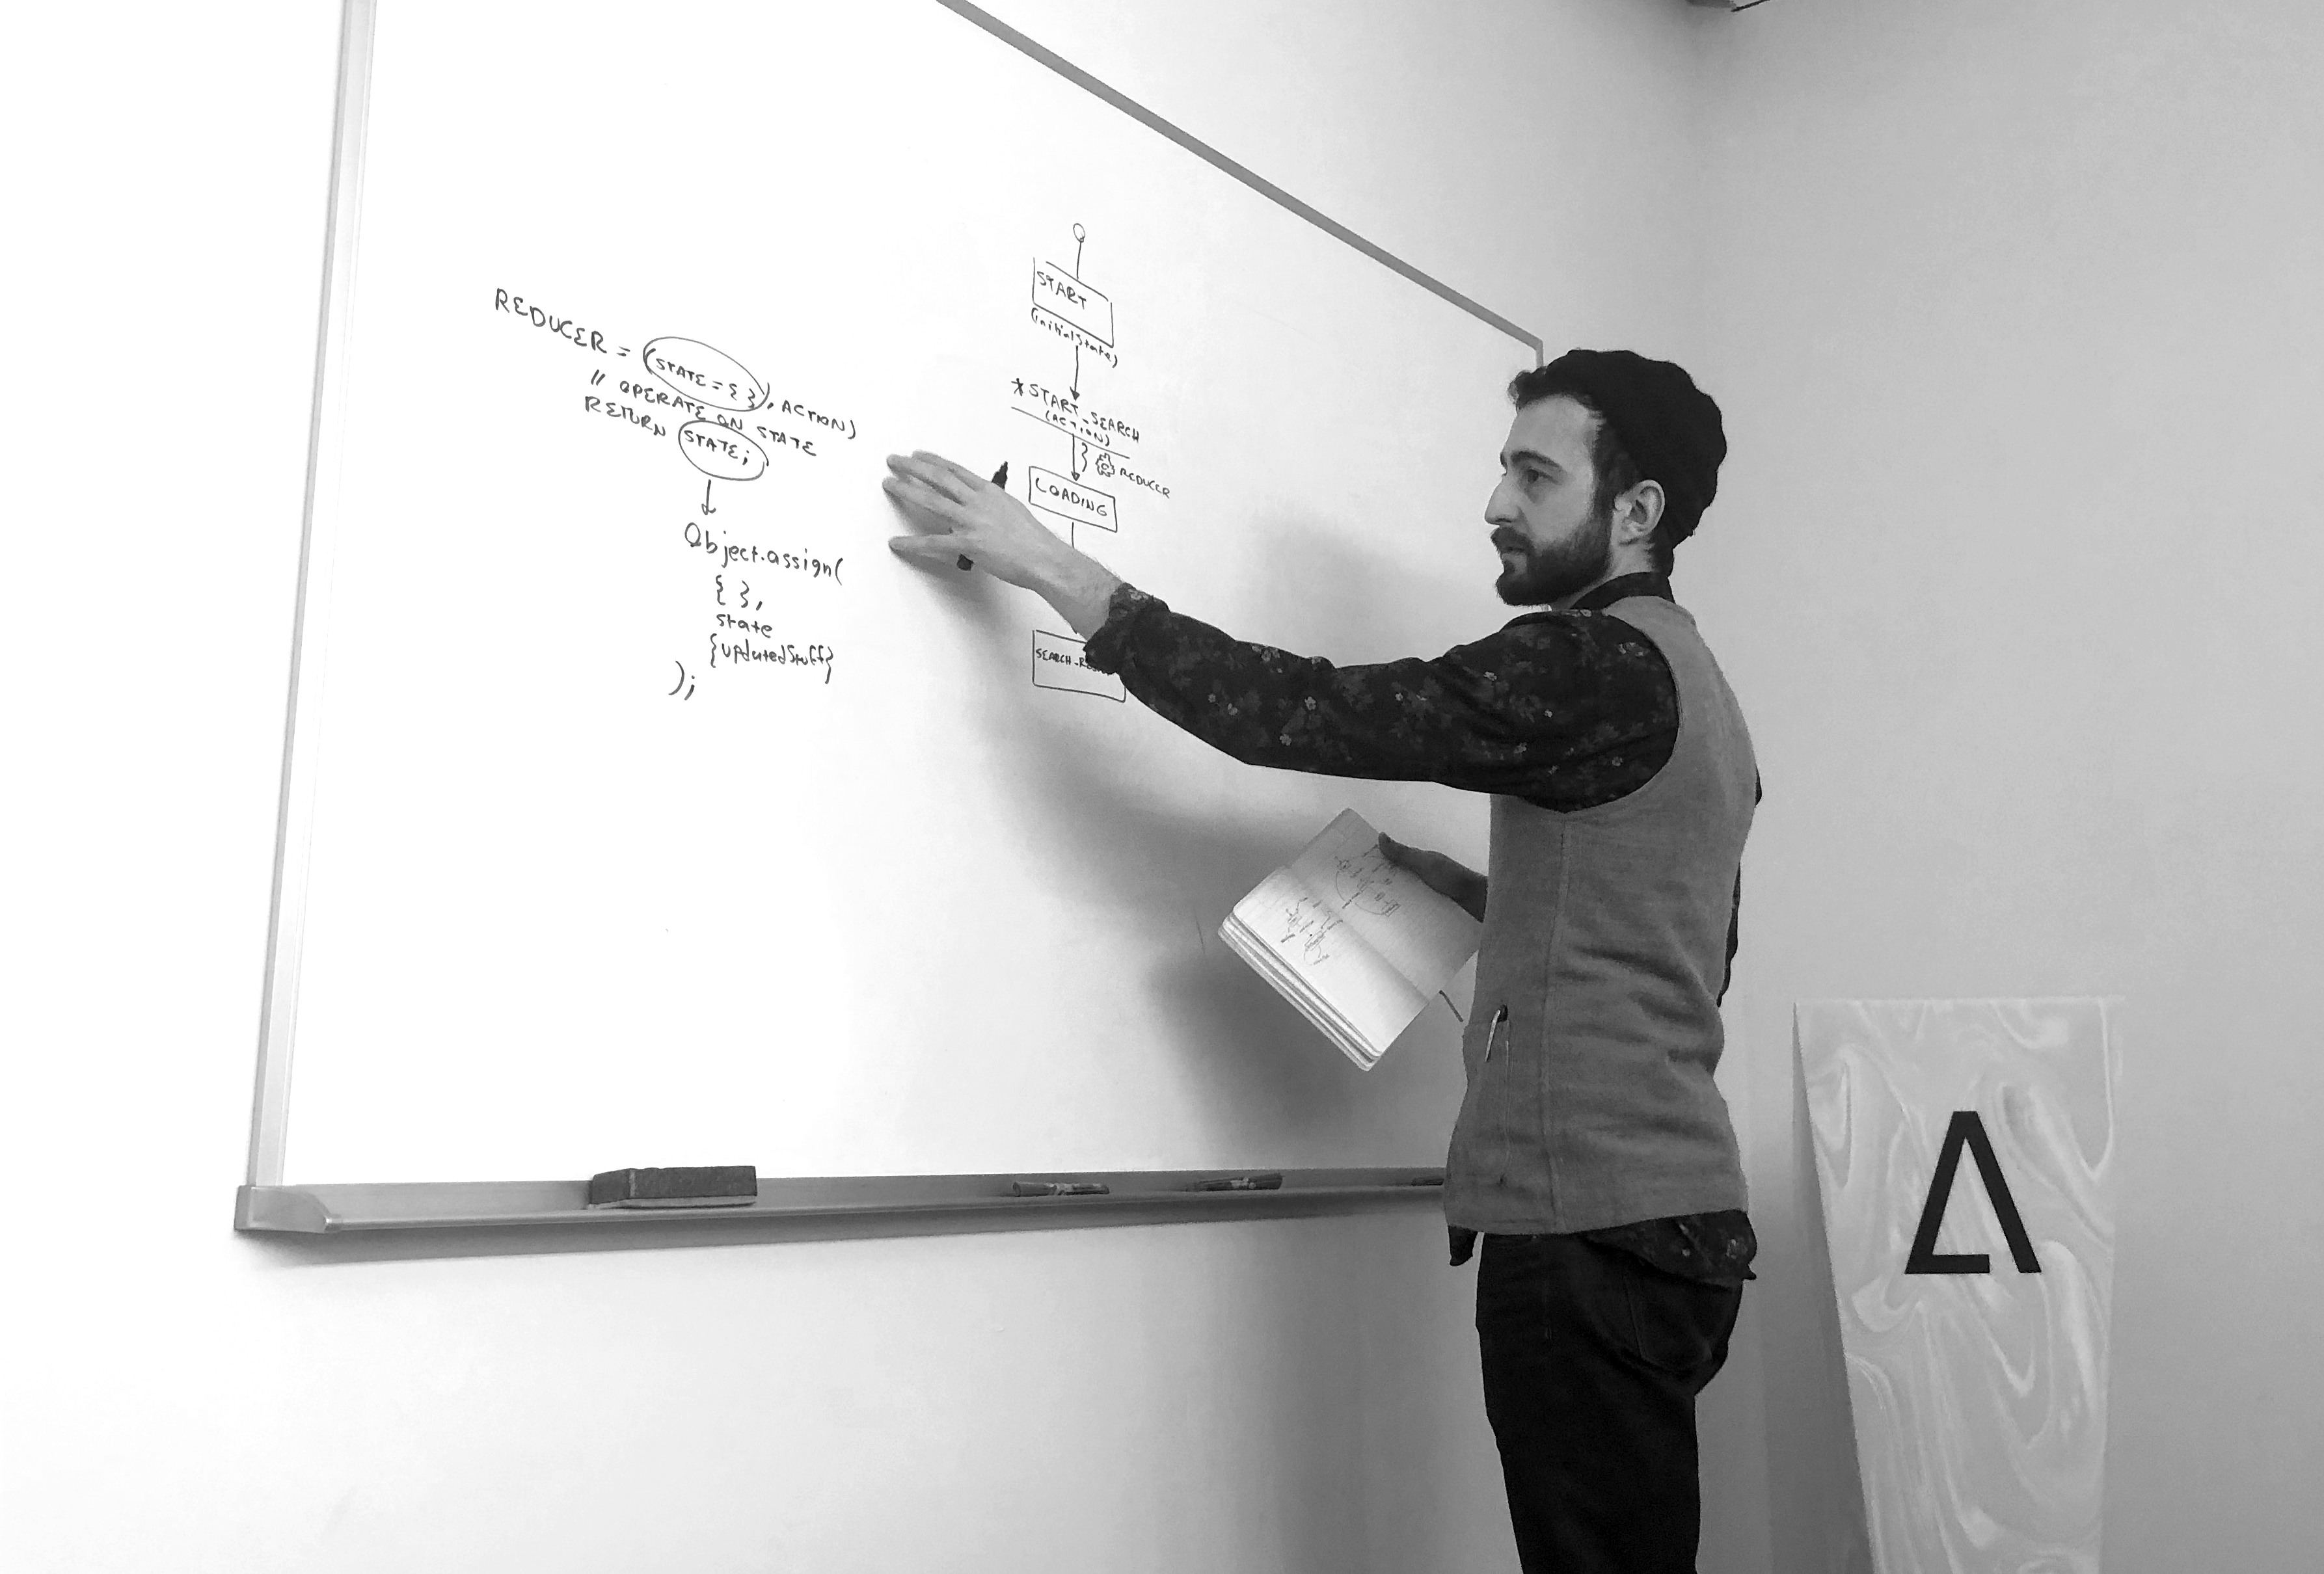 REDUCER = (STATE = { }, ACTION)
// OPERATE ON STATE
RETURN STATE;
Object.assign(
{ },
state
{updatedStuff}
);
START
(initialState)
*START_SEARCH
(ACTION)
} REDUCER
LOADING